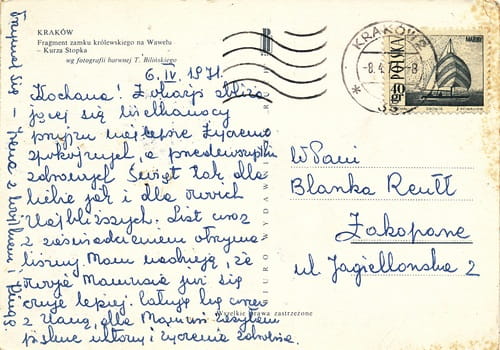 KRAKÓW
Fragment zamku królewskiego na Wawelu
– Kurza Stopka
wg fotografii barwnej T. Bilińskiego
6.IV.1971.
Kochana! Z okazji zbliża
jącej się Wielkanocy
przyjm najlepsze życzenia
spokojnych, a przedewszystkim
zdrowych Świąt tak dla
Ciebie jak i dla Twoich
Najbliższych. List wraz
z zaświadczeniem otrzyma
liśmy. Mam nadzieję, że
Twoja Mamusia już się
czuje lepiej. Całuję Cię wraz
z Hanią, dla Mamusi zasyłam
piękne ukłony i życzenia zdrowia.
Trzymaj się –
BIURO WYDAW
Wszelkie prawa zastrzeżone
KRAKÓW 2
-8.4.7 -8
POLSKA
40 gr
W Pani
Blanka Reutt
Zakopane
ul Jagiellońska 2